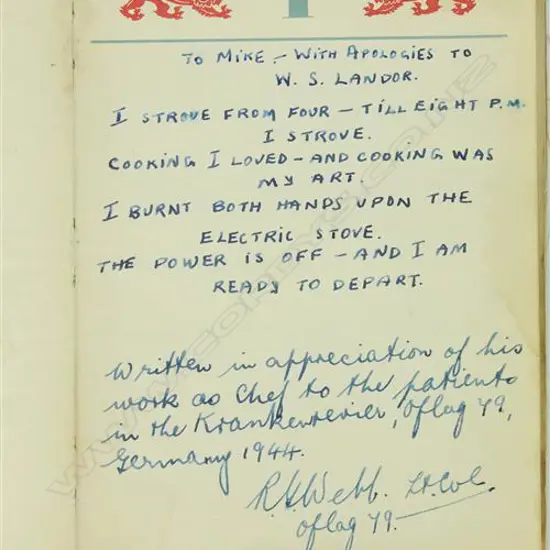 TO MIKE - WITH APOLOGIES TO
W. S. LANDOR.
I STROVE FROM FOUR - TILL EIGHT P.M.
I STROVE.
COOKING I LOVED - AND COOKING WAS
MY ART.
I BURNT BOTH HANDS UPON THE
ELECTRIC STOVE.
THE POWER IS OFF - AND I AM
READY TO DEPART.
Written in appreciation of his
work as Chef to the patients
in the Krankenrevier, Oflag 79,
Germany 1944.
Webb. Lt. Col.
Oflag 79.